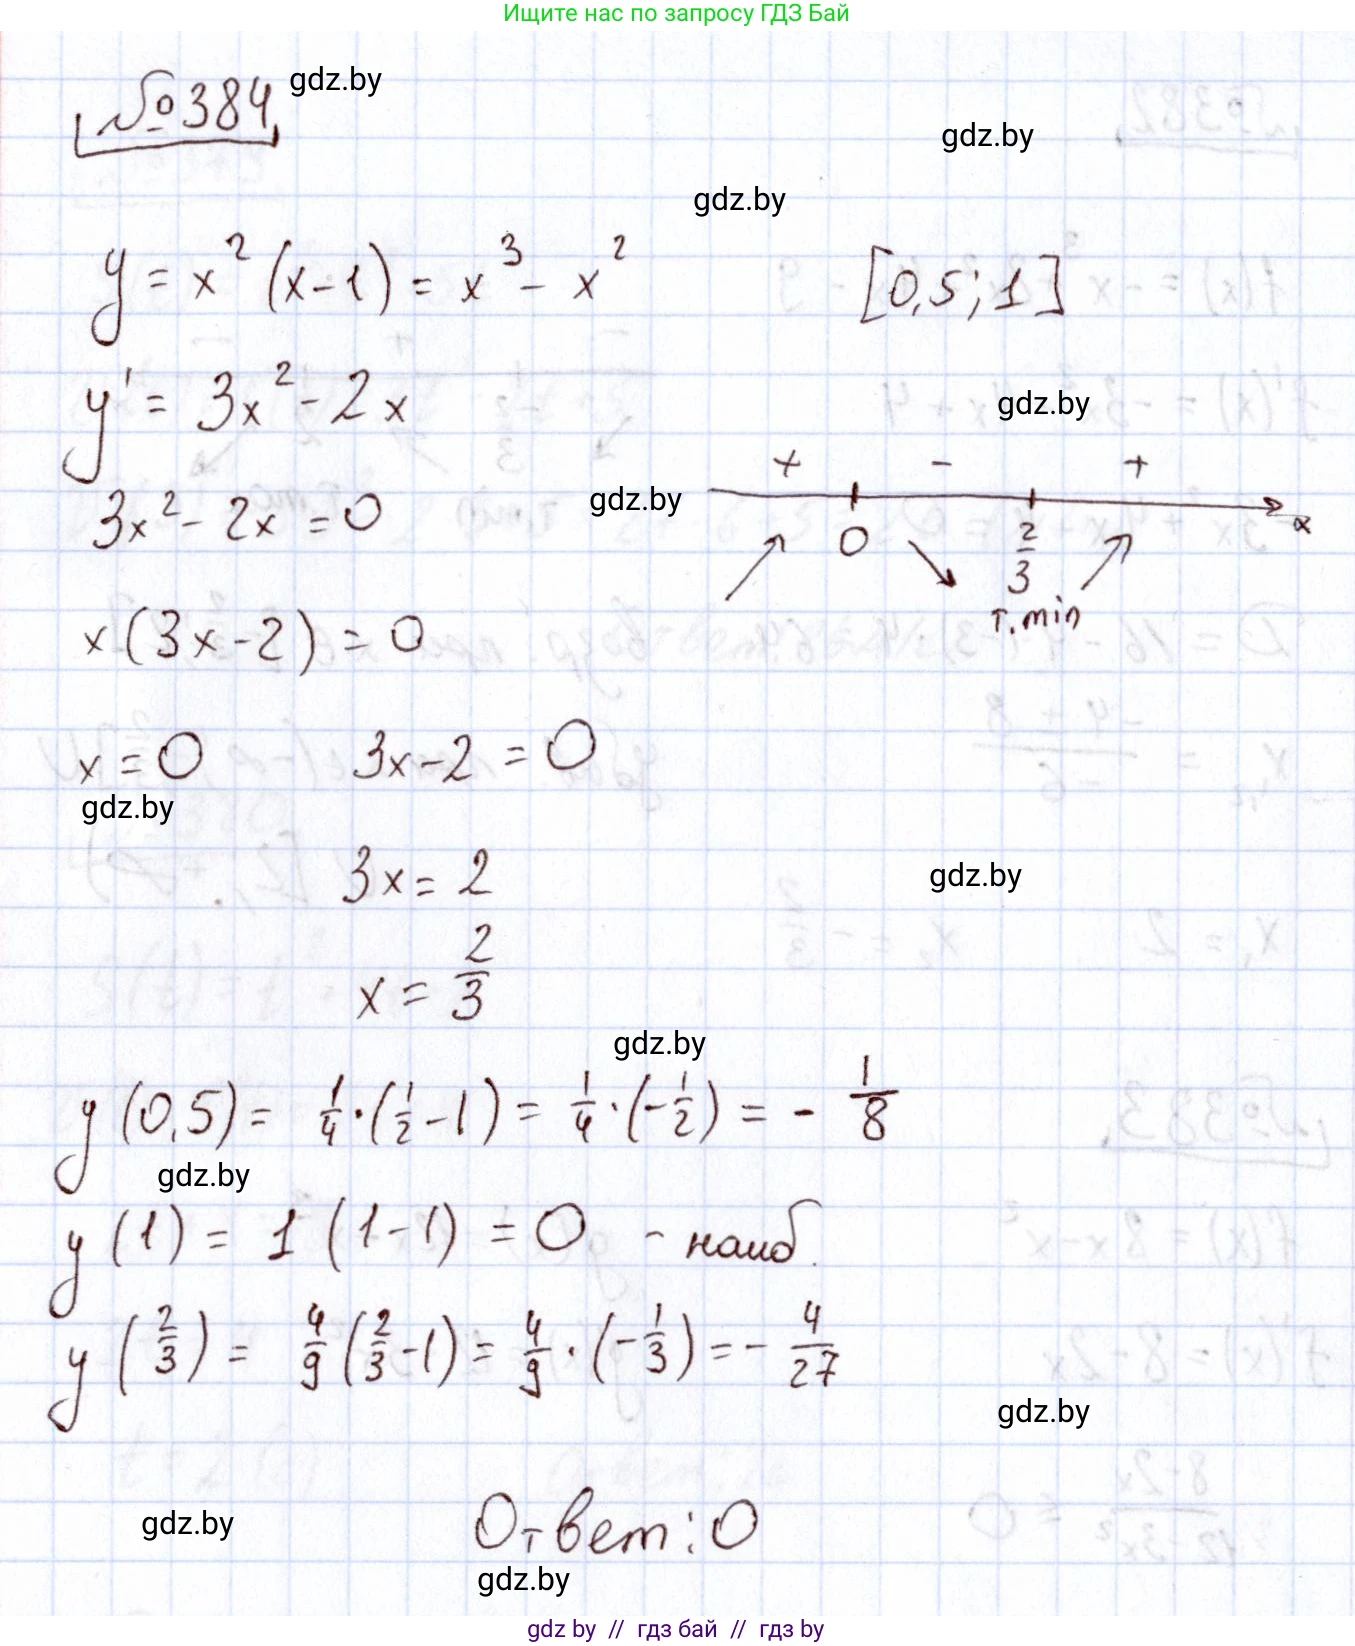 Ищите нас по запросу ГДЗ Бай
№384 gdz.by
gdz.by
gdz.by
y = x² (x-1) = x³ - x² [0,5; 1]
y' = 3x² - 2x
gdz.by
+ - +
3x² - 2x = 0 gdz.by
0 2/3 x
т. min
x (3x-2) = 0
x = 0 3x-2 = 0
gdz.by
3x = 2 gdz.by
x = 2/3
gdz.by
y (0,5) = 1/4 · (1/2 - 1) = 1/4 · (-1/2) = - 1/8
gdz.by
y (1) = 1 (1-1) = 0 - наиб.
y (2/3) = 4/9 (2/3 - 1) = 4/9 · (-1/3) = - 4/27
gdz.by
gdz.by Ответ: 0
gdz.by
gdz by // гдз бай // гдз by